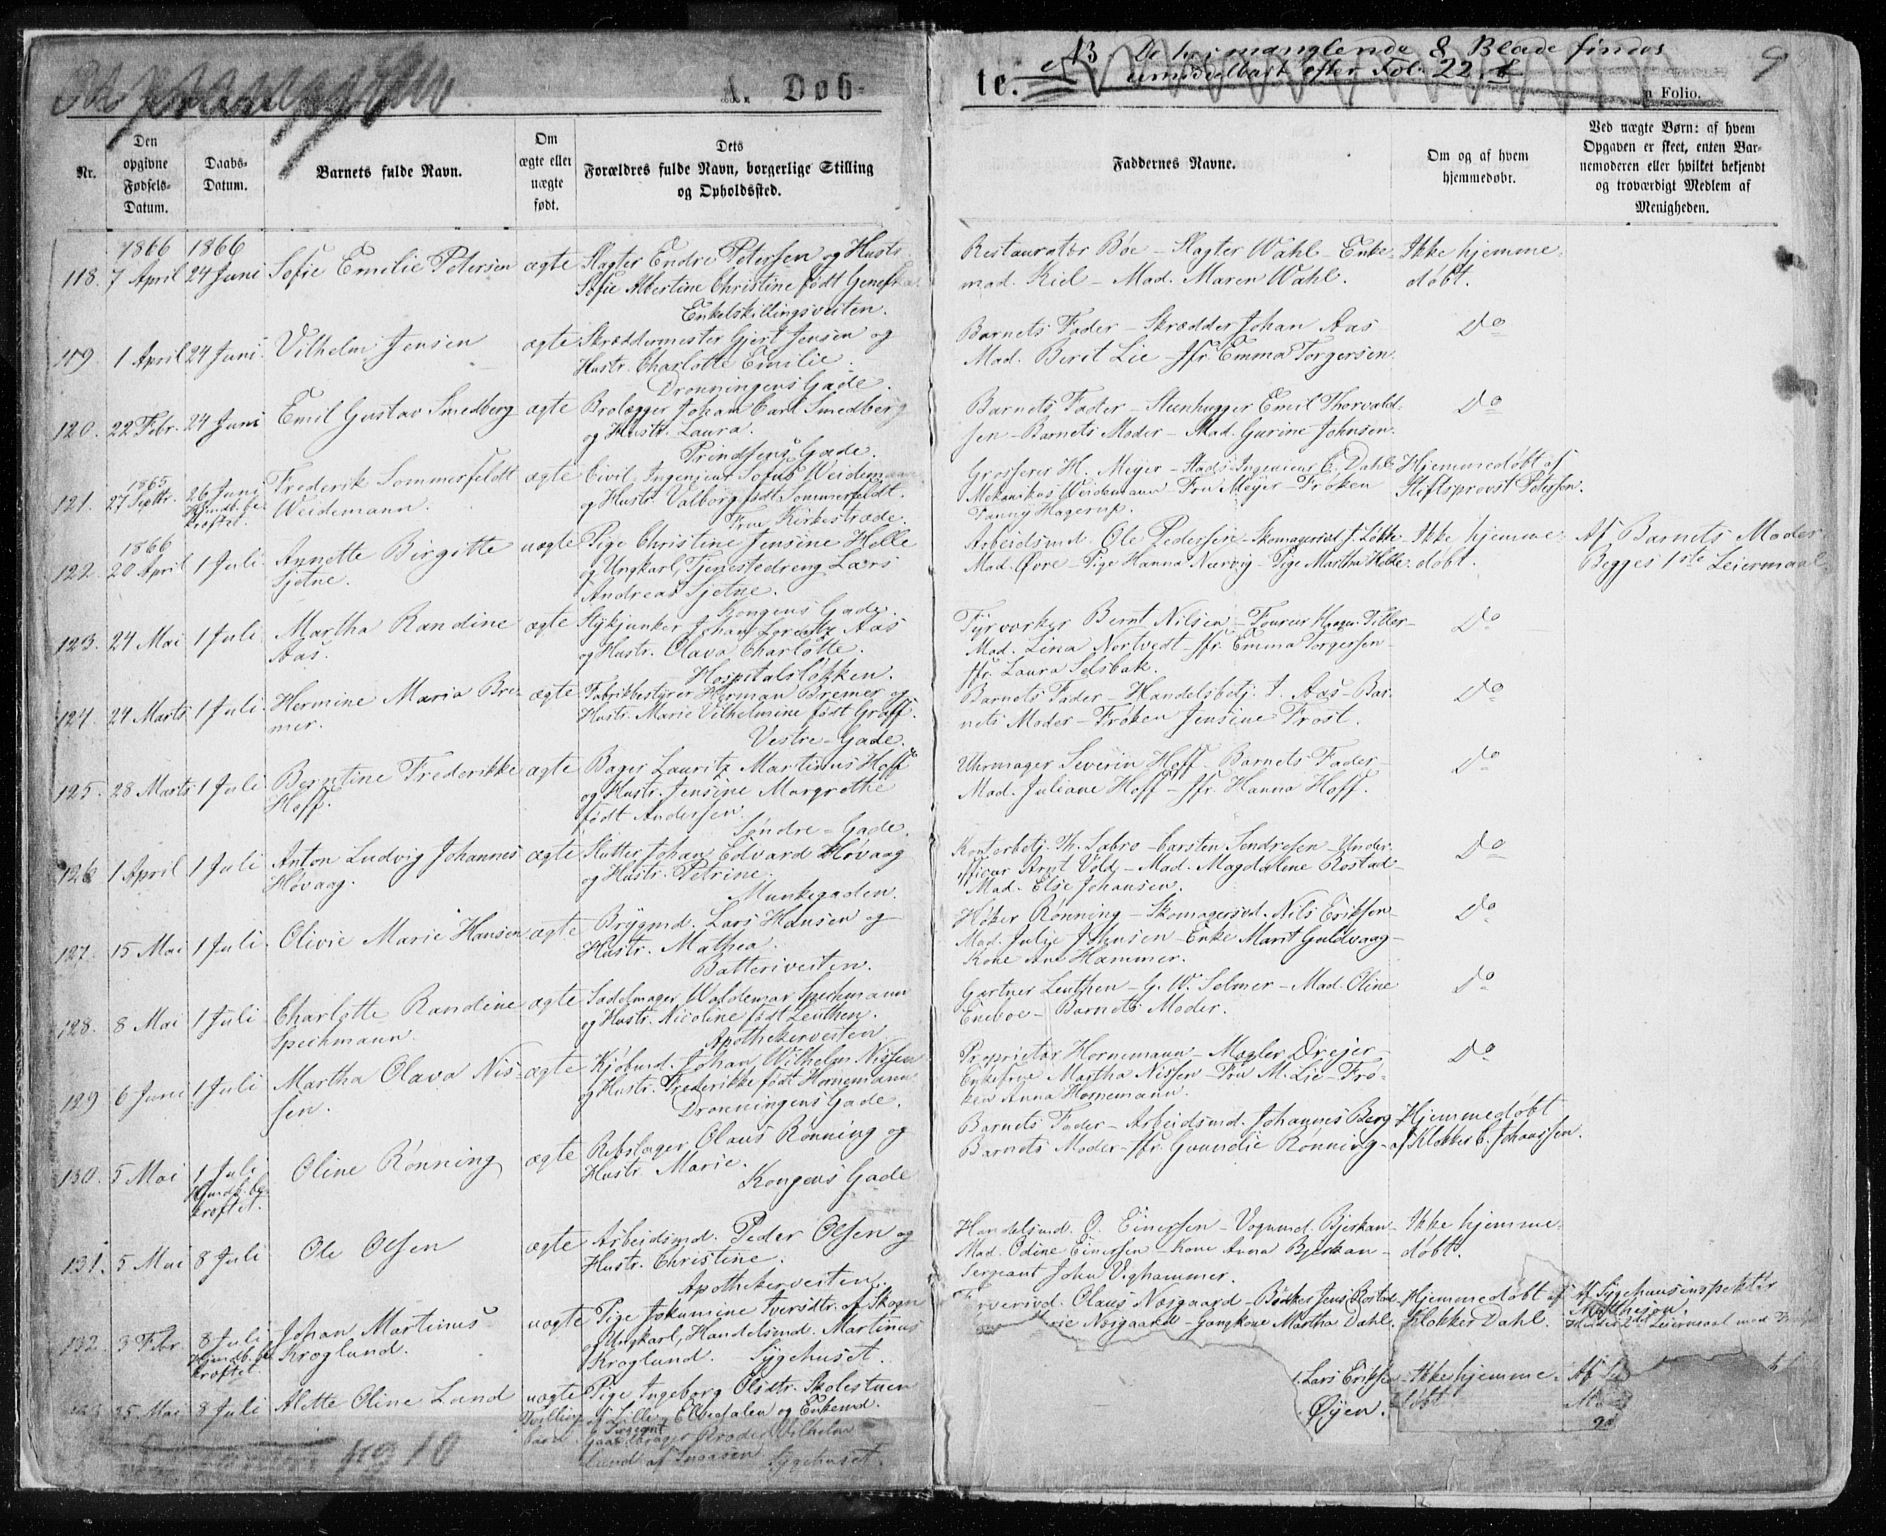 NB De her manglende 8 Blade findes
umiddelbart efter Fol. 22.
9
A. Døb-
te.
Folio.
Nr.
Den opgivne Fødsels-Datum.
Daabs-Datum.
Barnets fulde Navn.
Om ægte eller uægte født.
Dets Forældres fulde Navn, borgerlige Stilling og Opholdssted.
Faddernes Navne.
Om og af hvem hjemmedøbt.
Ved uægte Børn: af hvem Opgaven er skeet, enten Barnemoderen eller hvilket bekjendt og troværdigt Medlem af Menigheden.
1866 1866
118. 7 April 24 Juni Sofie Emilie Petersen ægte Slagter Endre Petersen og Hustr.
Sofie Albertine Christine født
Enkelskillingsveiten.
Restauratør Bøe – Slagter Wahl – Enke-
mad. Kiel – Mad. Maren Wahl.
Ikke hjemme-
døbt.
119. 1 April 24 Juni Vilhelm Jensen ægte Skræddermester Gjert Jensen og
Hustr. Charlotte Emilie.
Dronningens Gade.
Barnets Fader – Skrædder Johan Aas –
Mad. Berit Lie – Jfr. Emma Torgersen.
Do
120. 22 Febr. 24 Juni Emil Gustav Smedberg ægte Brolægger Johan Carl Smedberg
og Hustr. Laura.
Prindsens Gade.
Barnets Fader – Steenhugger Emil Thorvald-
sen – Barnets Moder – Mad. Gurine Johnsen.
Do
1865
121. 27 Septbr. 26 Juni
Hjmdb. be-
kræftet.
Frederik Sommerfeldt
Weidemann.
ægte Civil Ingenieur Sofus Weidemann
og Hustr. Valborg født Sommerfeldt.
Frue Kirkestræde.
Grosserer H. Meyer – Stads Ingenieur C. Dahl
Mekanikus Weidemann Fru Meyer Frøken
Fanny Hagerup.
Hjemmedøbt af
Stiftsprovst Petersen.
1866
122. 20 April 1 Juli Annette Birgitte
Sjetne.
uægte Pige Christine Jensine Holle
og Ungkarl, Tjenestedreng Lars
Andreas Sjetne.
Kongens Gade.
Arbeidsmd. Ole Pedersen – Skomagersvd J. Løkke
Mad. Øvre – Pige Hanna Nærvig – Pige Martha Holle
Ikke hjemme-
døbt.
Af Barnets Moder
Begges 1ste Leiermaal.
123. 24 Mai 1 Juli Martha Randine
Aas.
ægte Stykjunker Johan Lorentz Aas
og Hustr. Olava Charlotte.
Hospitalsløkken.
Fyrvorker Bernt Nilsen – Fourer Hagen Tiller –
Mad. Lina Nortvedt – Jfr. Emma Torgersen –
Jfr. Laura Selsbak.
Do
124. 24 Marts 1 Juli Hermine Maria Bre-
mer.
ægte Fabrikbestyrer Herman Bremer og
Hustr. Marie Vilhelmine født Gräff.
Vestre-Gade.
Barnets Fader – Handelsbetj. J. Aas – Bar-
nets Moder – Frøken Jensine Frost.
Do
125. 28 Marts 1 Juli Berntine Frederikke
Hoff.
ægte Bager Lauritz Martinus Hoff
og Hustr. Jensine Margrethe
født Andersen.
Søndre-Gade.
Uhrmager Severin Hoff – Barnets Fader –
Mad. Juliane Hoff – Jfr. Hanna Hoff.
Do
126 1 April 1 Juli Anton Ludvig Johannes
Høvaag.
ægte Slutter Johan Edvard Høvaag
og Hustr. Petrine.
Munkegaden.
Kontorbetj. Th. Sabro – Carsten Sendresen – Under-
officer Arnt Vold – Mad. Magdalene Rostad –
Mad. Else Johansen.
Do
127. 15 Mai 1 Juli. Olivie Marie Hansen ægte Brygmd. Lars Hansen og
Hustr. Mathea.
Batteriveiten.
Høker Rønning – Skomagersvd. Nils Eriksen –
Mad. Julie Johnsen – Enke Marit Guldvaag –
Kone Ane Hammer.
Do
128. 8 Mai 1 Juli Charlotte Randine
Spechmann.
ægte Sadelmager Waldemar Spechmann
og Hustr. Nicoline født Leuthen.
Apothekerveiten
Gartner Leuthen – G. W. Selmer – Mad. Oline
Eneboe – Barnets Moder.
Do
129 6 Juni 1 Juli Martha Olava Nis-
sen.
ægte Kjøbmd. Johan Wilhelm Nissen
og Hustr. Frederikke født Hornemann
Dronningens Gade.
Proprietær Hornemann – Mægler Drejer –
Enkefrue Martha Nissen – Fru M. Lie – Frø-
ken Anna Hornemann.
Do
130. 5 Mai 1 Juli
Hjmdb. be-
kræftet.
Oline Rønning ægte Rebslager Olaus Rønning og
Hustr. Marie.
Kongens Gade
Barnets Fader – Arbeidsmd. Johannes Berg
Barnets Moder – Jfr. Gunndie Rønning –
Hjemmedøbt
af Klokker C. Johanssen.
131. 5 Mai 8 Juli Ole Olsen ægte Arbeidsmd. Peder Olsen og
Hustr. Christine.
Apothekerveiten.
Handelsmd. O. Einersen – Vognmd. Bjerkan –
Mad. Odine Einersen – Kone Anna Bjerkan –
Sergeant John Vighammer.
Ikke hjemme-
døbt.
132. 3 Febr 8 Juli
Hjmdb. be-
kræftet.
Johan Martinus
Kroglund.
uægte Pige Jokumine Iversdtr. af Skogn
og Ungkarl, Handelsmd. Martinus
Kroglund. Sygehuset.
Farversvd. Olaus Næsgaard – Bødker Jens Rostad
rie Næsgaard – Gangkone Martha Dahl.
Hjemmedøbt af
Klokker Dahl.
Af Sygehusinspektør
Matheson.
Hendes 2det Leiermaal med
133 25 Mai 8 Juli Alette Oline Lund uægte
Tvilling-
barn.
Pige Ingeborg Olsdtr. Skolestuen
af Lille Elvedalen og Enkemd.
Gaardbruger Broder Vilhelm
Lund af Snaasen Sygehuset.
Lars Eriksen
Øyen.
Ikke hjemme-
døbt
Af
10